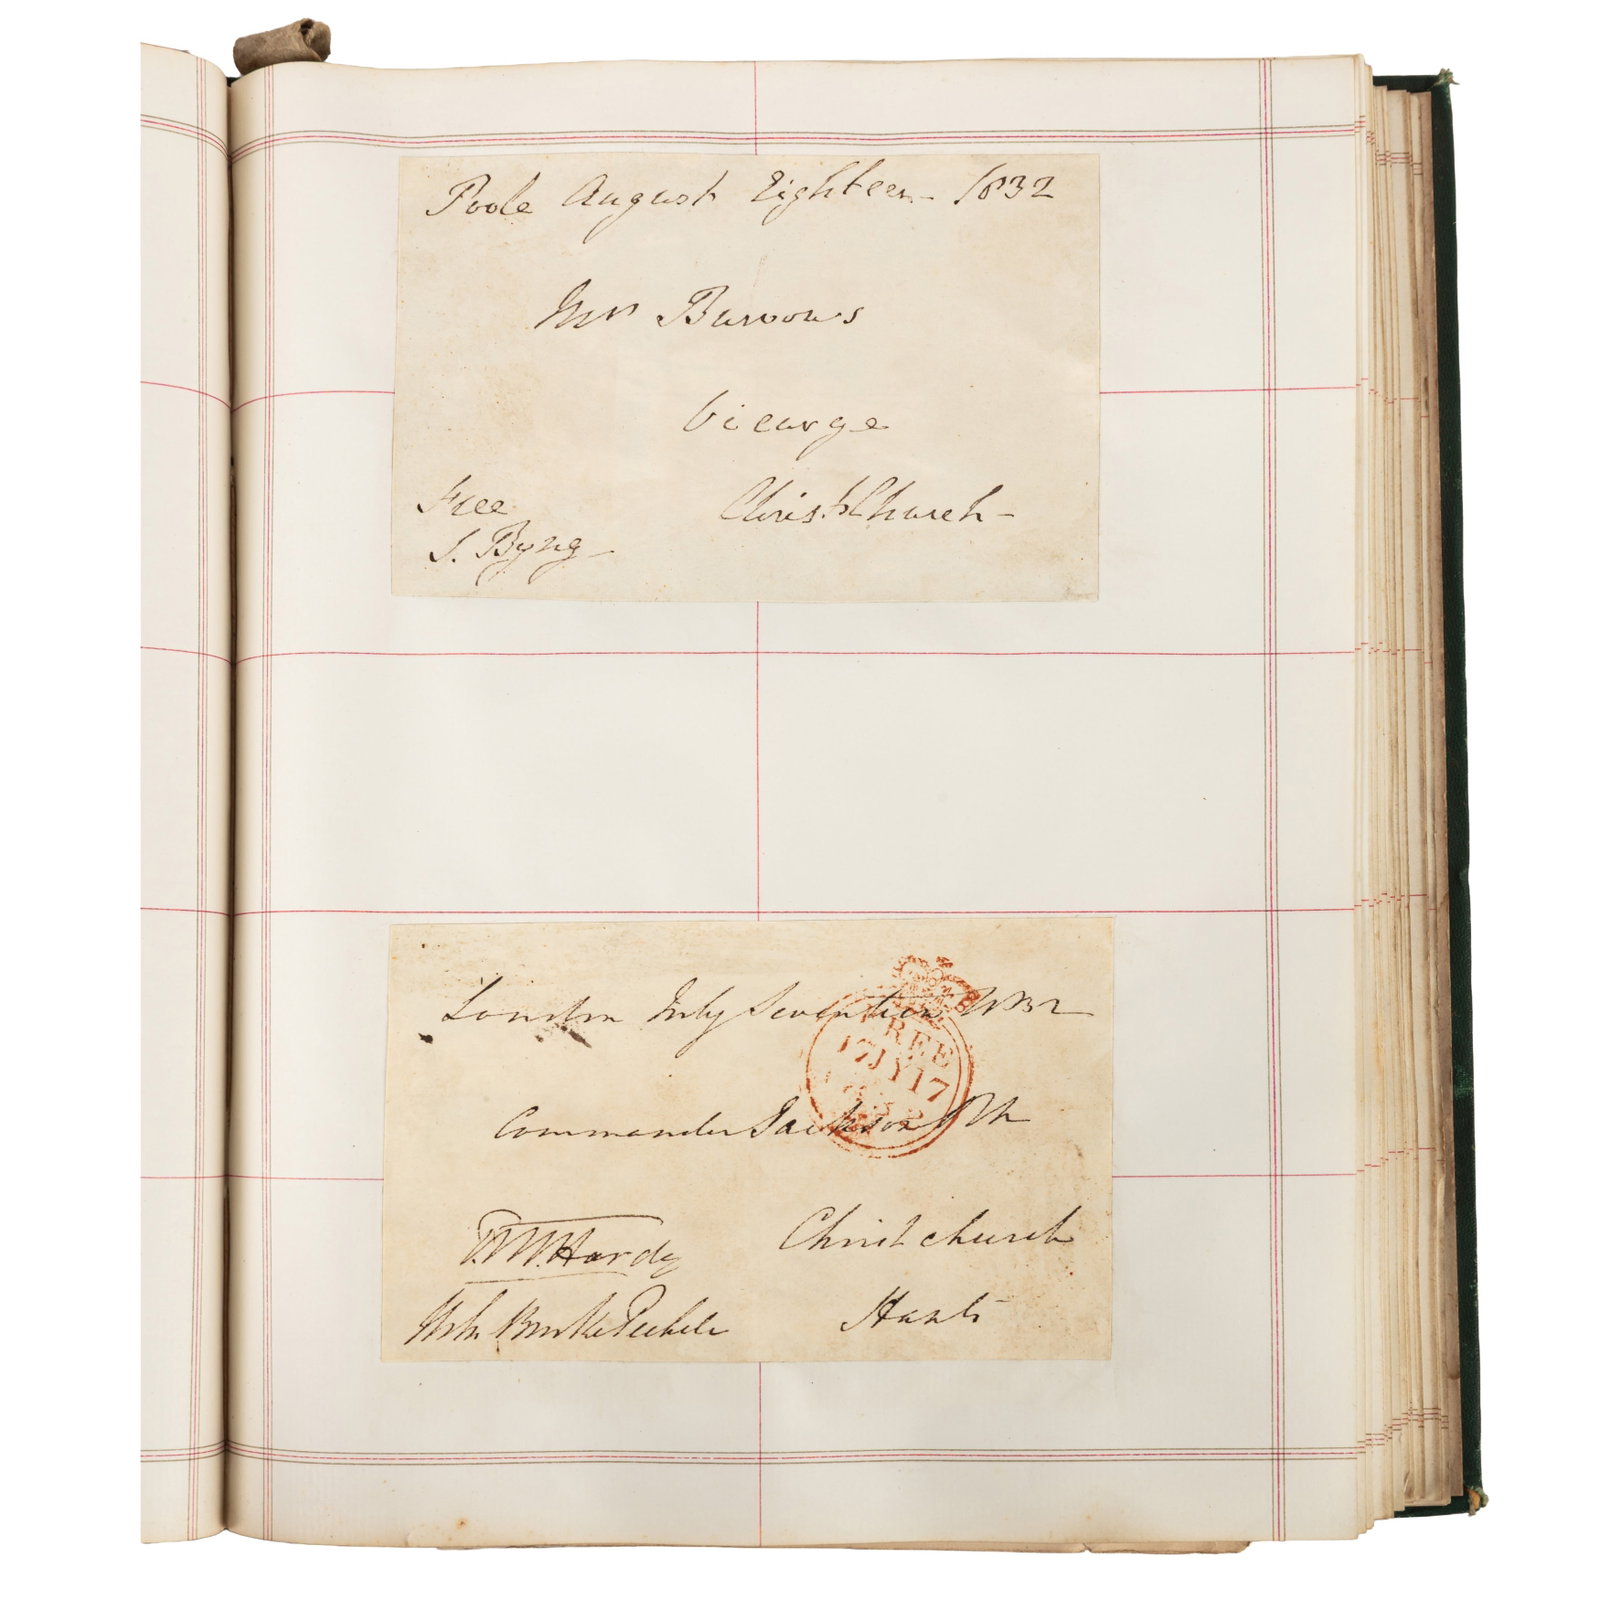 Poole August Eighteen - 1832
Mrs Burrows
Vicarge
Free
ChristChurch -
S. Byng -
London July Seventeen 1832
FREE
17 JY 17
1832
Commander Jackson RN
T. M. Hardy
Christchurch
Hants